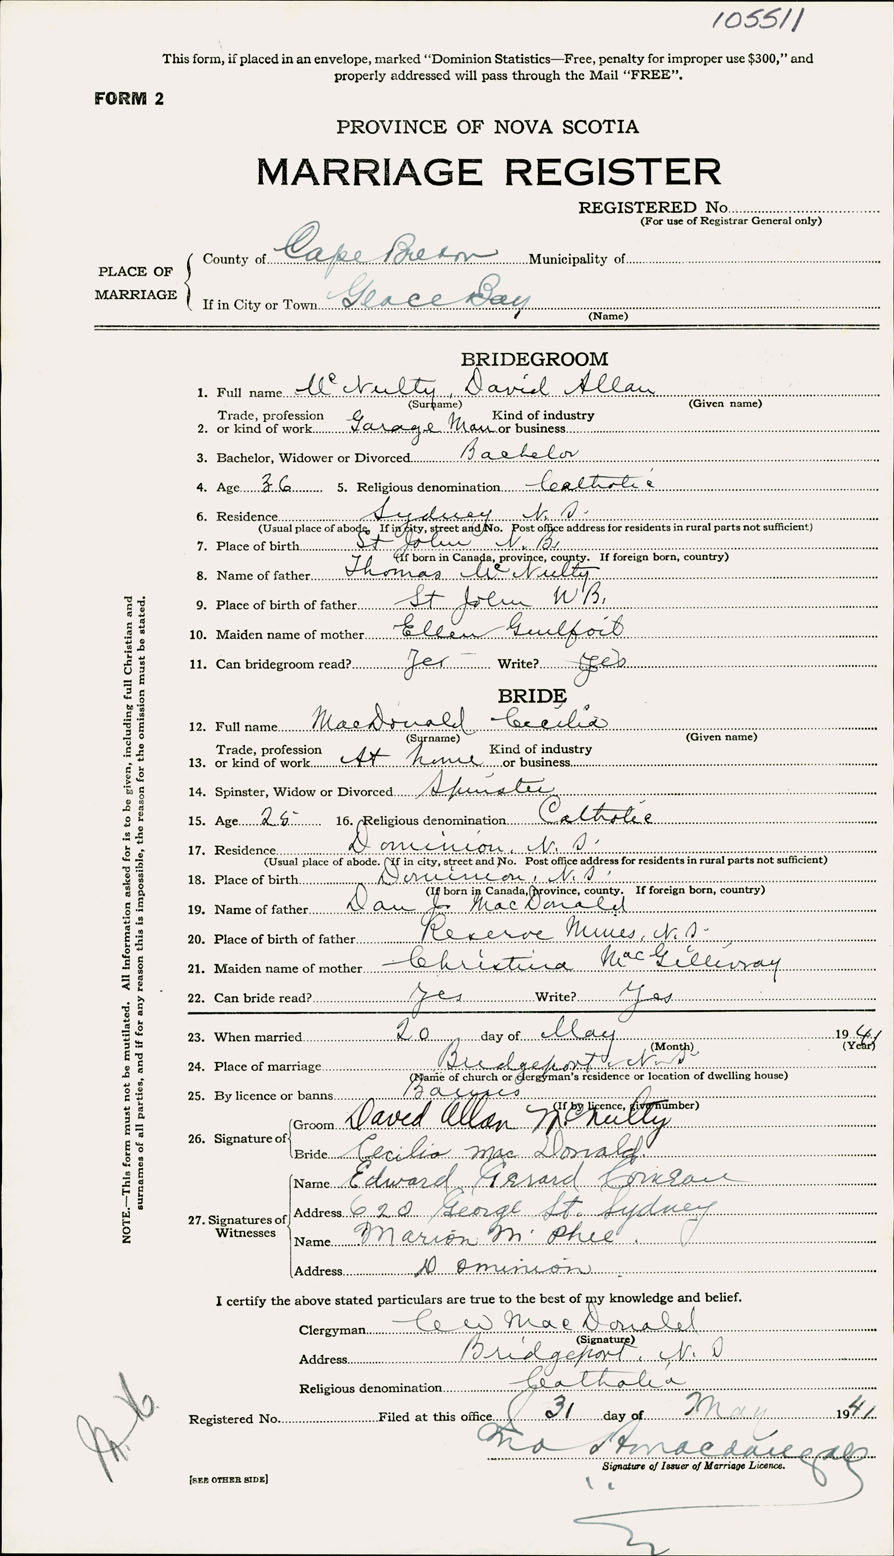 105511
This form, if placed in an envelope, marked “Dominion Statistics—Free, penalty for improper use $300,” and
properly addressed will pass through the Mail “FREE”.
FORM 2
PROVINCE OF NOVA SCOTIA
MARRIAGE REGISTER
REGISTERED No.
(For use of Registrar General only)
PLACE OF MARRIAGE
County of Cape Breton Municipality of
If in City or Town Glace Bay
(Name)
BRIDEGROOM
1. Full name McNulty, David Allan
(Surname) (Given name)
Trade, profession Kind of industry
2. or kind of work Garage Man or business
3. Bachelor, Widower or Divorced Bachelor
4. Age 36 5. Religious denomination Catholic
6. Residence Sydney N. S.
(Usual place of abode. If in city, street and No. Post office address for residents in rural parts not sufficient)
7. Place of birth St John N. B.
(If born in Canada, province, county. If foreign born, country)
8. Name of father Thomas McNulty
9. Place of birth of father St John N B.
10. Maiden name of mother Ellen Guilfoit
11. Can bridegroom read? Yes Write? Yes
BRIDE
12. Full name MacDonald Cecilia
(Surname) (Given name)
Trade, profession Kind of industry
13. or kind of work At home or business
14. Spinster, Widow or Divorced Spinster
15. Age 25 16. Religious denomination Catholic
17. Residence Dominion, N. S.
(Usual place of abode. If in city, street and No. Post office address for residents in rural parts not sufficient)
18. Place of birth Dominion, N. S.
(If born in Canada, province, county. If foreign born, country)
19. Name of father Dan J. MacDonald
20. Place of birth of father Reserve Mines, N. S.
21. Maiden name of mother Christina MacGillivray
22. Can bride read? Yes Write? Yes
23. When married 20 day of May 1941
(Month) (Year)
24. Place of marriage Bridgeport, N. S.
(Name of church or clergyman's residence or location of dwelling house)
25. By licence or banns Banns
(If by licence, give number)
26. Signature of
Groom David Allan McNulty
Bride Cecilia mac Donald
27. Signatures of Witnesses
Name Edward Gerard Comeau
Address 620 George St. Sydney
Name Marion McPhee.
Address Dominion
I certify the above stated particulars are true to the best of my knowledge and belief.
Clergyman C W MacDonald
(Signature)
Address Bridgeport, N. S
Religious denomination Catholic
Registered No. Filed at this office 31 day of May 1941
Signature of Issuer of Marriage Licence.
[SEE OTHER SIDE]
NOTE.—This form must not be mutilated. All information asked for is to be given, including full Christian and
surnames of all parties, and if for any reason this is impossible, the reason for the omission must be stated.